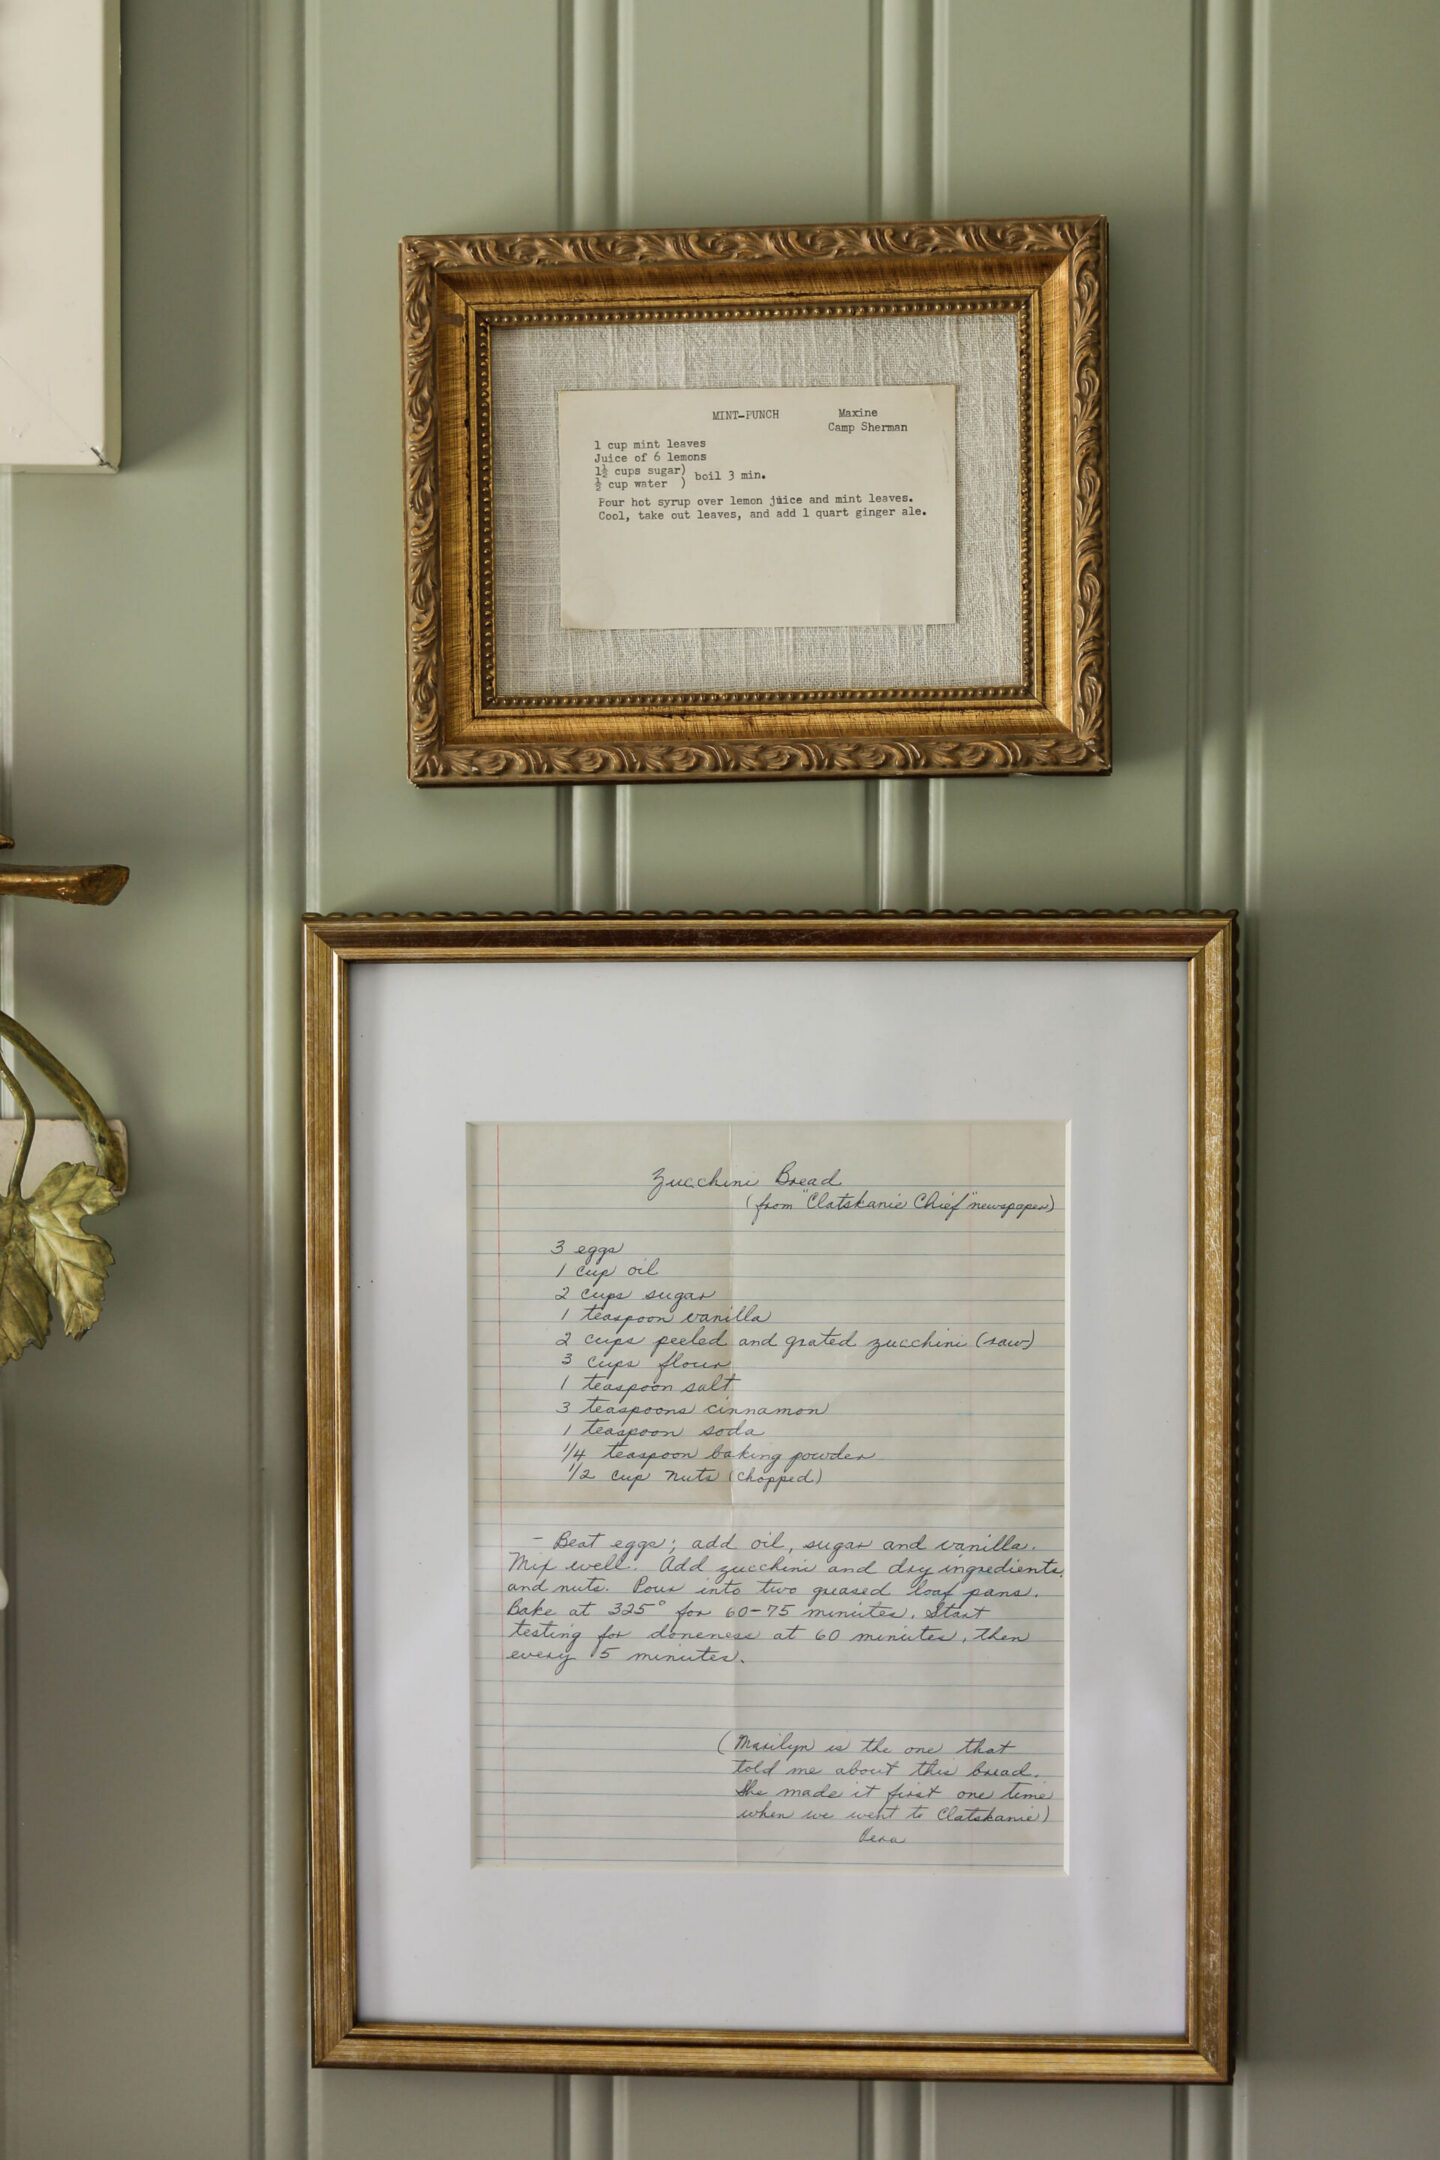 MINT-PUNCH Maxine
Camp Sherman
1 cup mint leaves
Juice of 6 lemons
1½ cups sugar)
½ cup water ) boil 3 min.
Pour hot syrup over lemon juice and mint leaves.
Cool, take out leaves, and add 1 quart ginger ale.
Zucchini Bread
(from "Clatskanie Chief" newspaper)
3 eggs
1 cup oil
2 cups sugar
1 teaspoon vanilla
2 cups peeled and grated zucchini (raw)
3 cups flour
1 teaspoon salt
3 teaspoons cinnamon
1 teaspoon soda
1/4 teaspoon baking powder
1/2 cup nuts (chopped)
- Beat eggs; add oil, sugar and vanilla.
Mix well. Add zucchini and dry ingredients
and nuts. Pour into two greased loaf pans.
Bake at 325° for 60-75 minutes. Start
testing for doneness at 60 minutes, then
every 5 minutes.
(Marilyn is the one that
told me about this bread.
She made it first one time
when we went to Clatskanie)
Vera